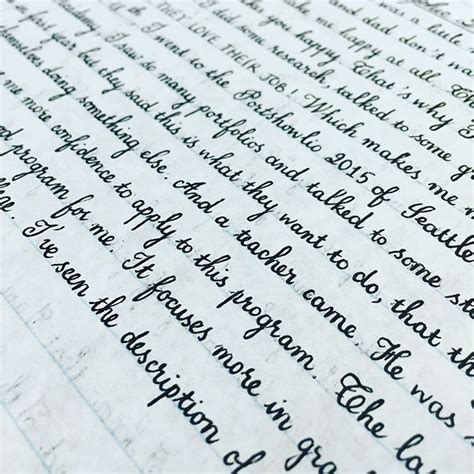 was a little
and dad don't w
me happy at all.
you happy. That's why I
some research, talked to some
THEY LOVE THEIR JOB! Which makes me
I went to the Portshowlio 2015 of Seattle
I saw so many portfolios and talked to some
last year but they said this is what they want to do, that th
doing something else. And a teacher came. He was
me more confidence to apply to this program. The la
program for me. It focuses more in gra
I've seen the description of